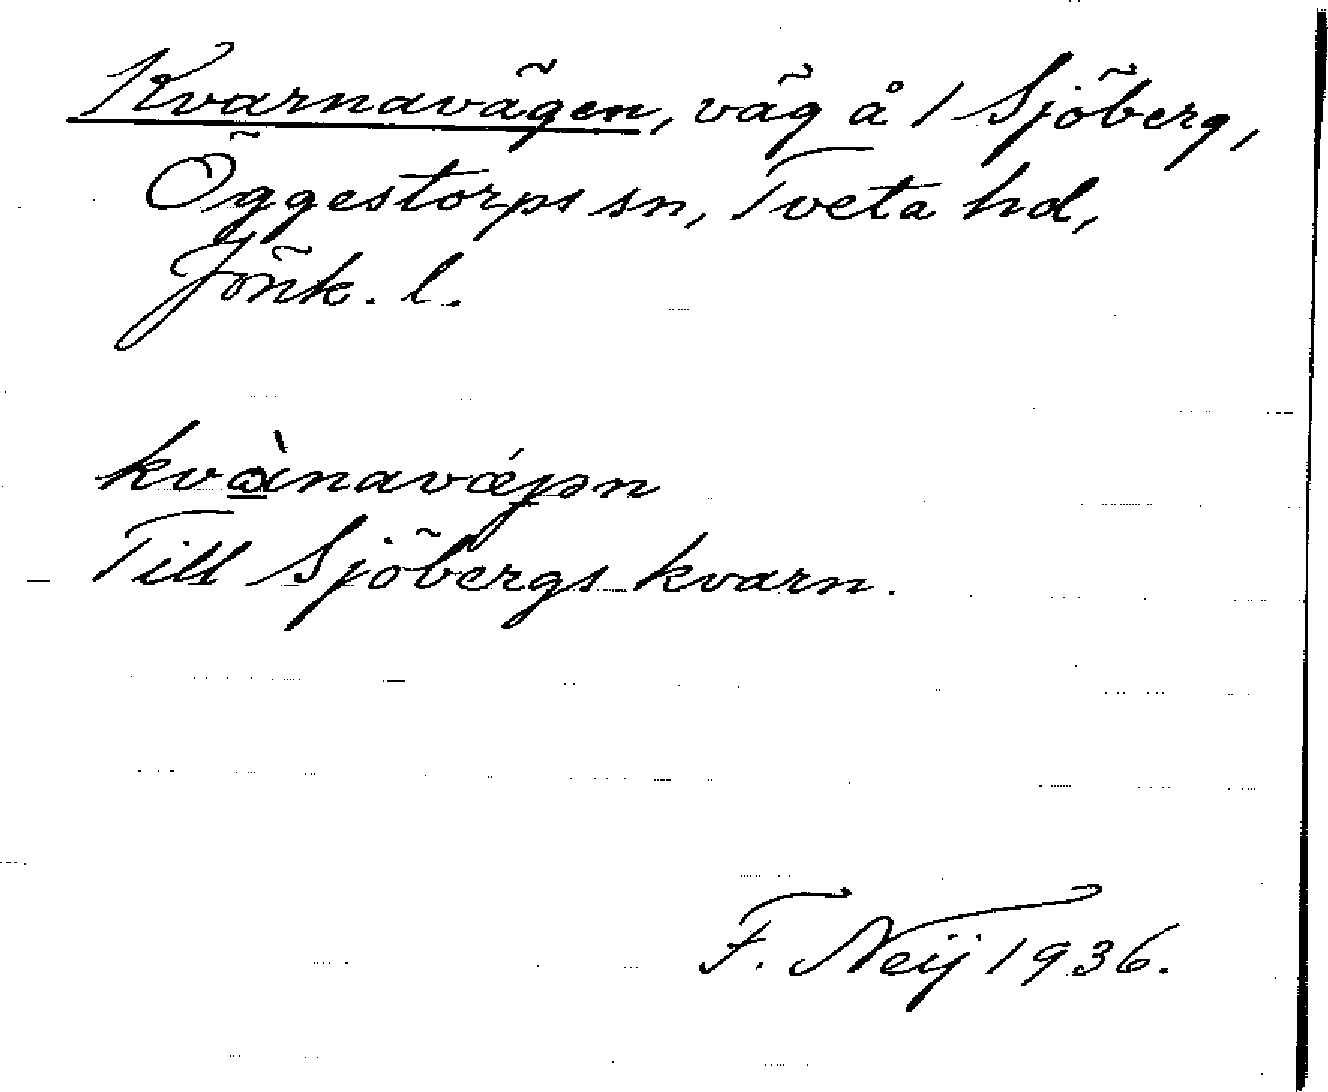 Kvarnavägen, väg å 1 Sjöberg,
Öggestorps sn, Tveta hd,
Jönk. l.
kvànavæ´jən
Till Sjöbergs kvarn.
F. Neij 1936.